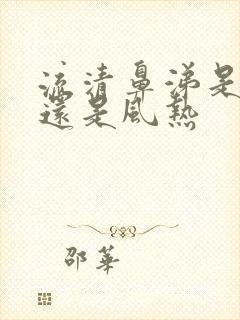 流清鼻涕是
還是風熱
邵華